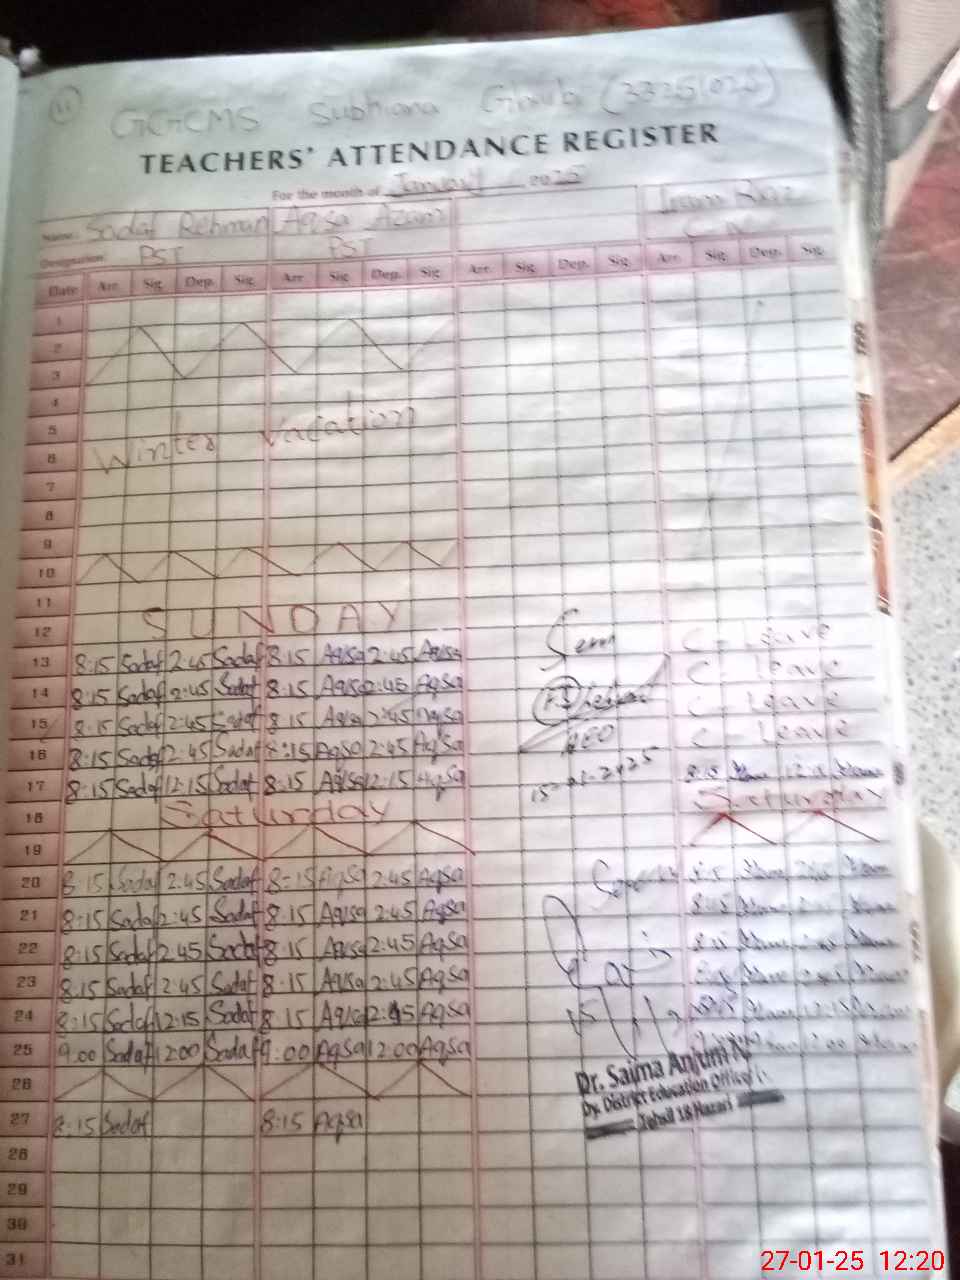 11
GGCMS Subhiana Gharbi (33251028)
TEACHERS' ATTENDANCE REGISTER
For the month of January 2025
Name: Sadaf Rehman Aqsa Azam
Designation PST PST
Date Arr. Sig. Dep. Sig. Arr. Sig. Dep. Sig. Arr. Sig. Dep. Sig. Arr. Sig. Dep. Sig.
1
2
3
4
5 Winter Vacation
6
7
8
9
10
11
12 SUNDAY C - Leave
13 8:15 Sadaf 2:45 Sadaf 8:15 Aqsa 2:45 Aqsa C - Leave
14 8:15 Sadaf 2:45 Sadaf 8:15 Aqsa 2:45 Aqsa C - Leave
15 8:15 Sadaf 2:45 Sadaf 8:15 Aqsa 2:45 Aqsa C - Leave
16 8:15 Sadaf 2:45 Sadaf 8:15 Aqsa 2:45 Aqsa AEO
17 8:15 Sadaf 12:15 Sadaf 8:15 Aqsa 12:15 Aqsa 15-01-2025 8:15
18 Saturday Saturday
19
20 8:15 Sadaf 2:45 Sadaf 8:15 Aqsa 2:45 Aqsa
21 8:15 Sadaf 2:45 Sadaf 8:15 Aqsa 2:45 Aqsa
22 8:15 Sadaf 2:45 Sadaf 8:15 Aqsa 2:45 Aqsa
23 8:15 Sadaf 2:45 Sadaf 8:15 Aqsa 2:45 Aqsa
24 8:15 Sadaf 12:15 Sadaf 8:15 Aqsa 2:45 Aqsa
25 9:00 Sadaf 12:00 Sadaf 9:00 Aqsa 12:00 Aqsa
26 Dr. Saima Anjum
Dy. District Education Officer
Tehsil 18 Hazari
27 8:15 Sadaf 8:15 Aqsa
28
29
30
31
27-01-25 12:20